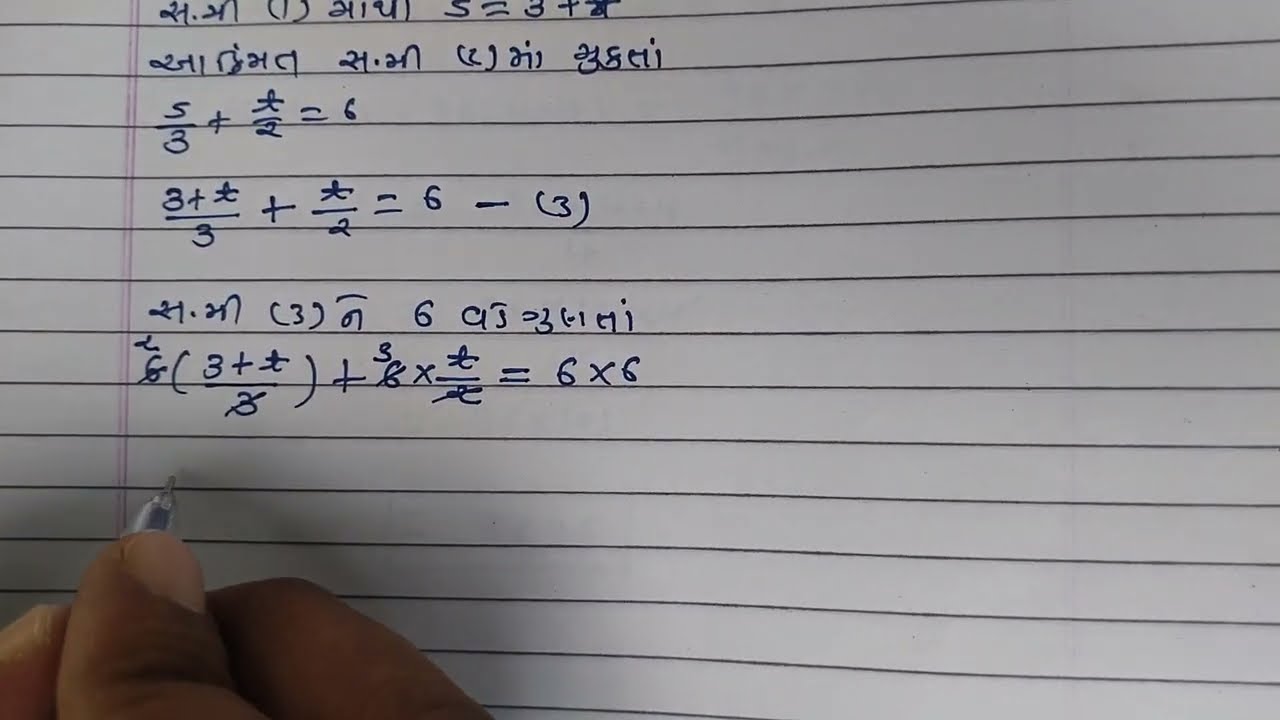 સ.મી (1) માંથી s = 3 + t
આ કિંમત સ.મી (૨) માં મુકતાં
s/3 + t/2 = 6
(3+t)/3 + t/2 = 6 – (3)
સ.મી (3) ને 6 વડે ગુણતાં
2 6((3+t)/3) + 3 6 × t/2 = 6 × 6